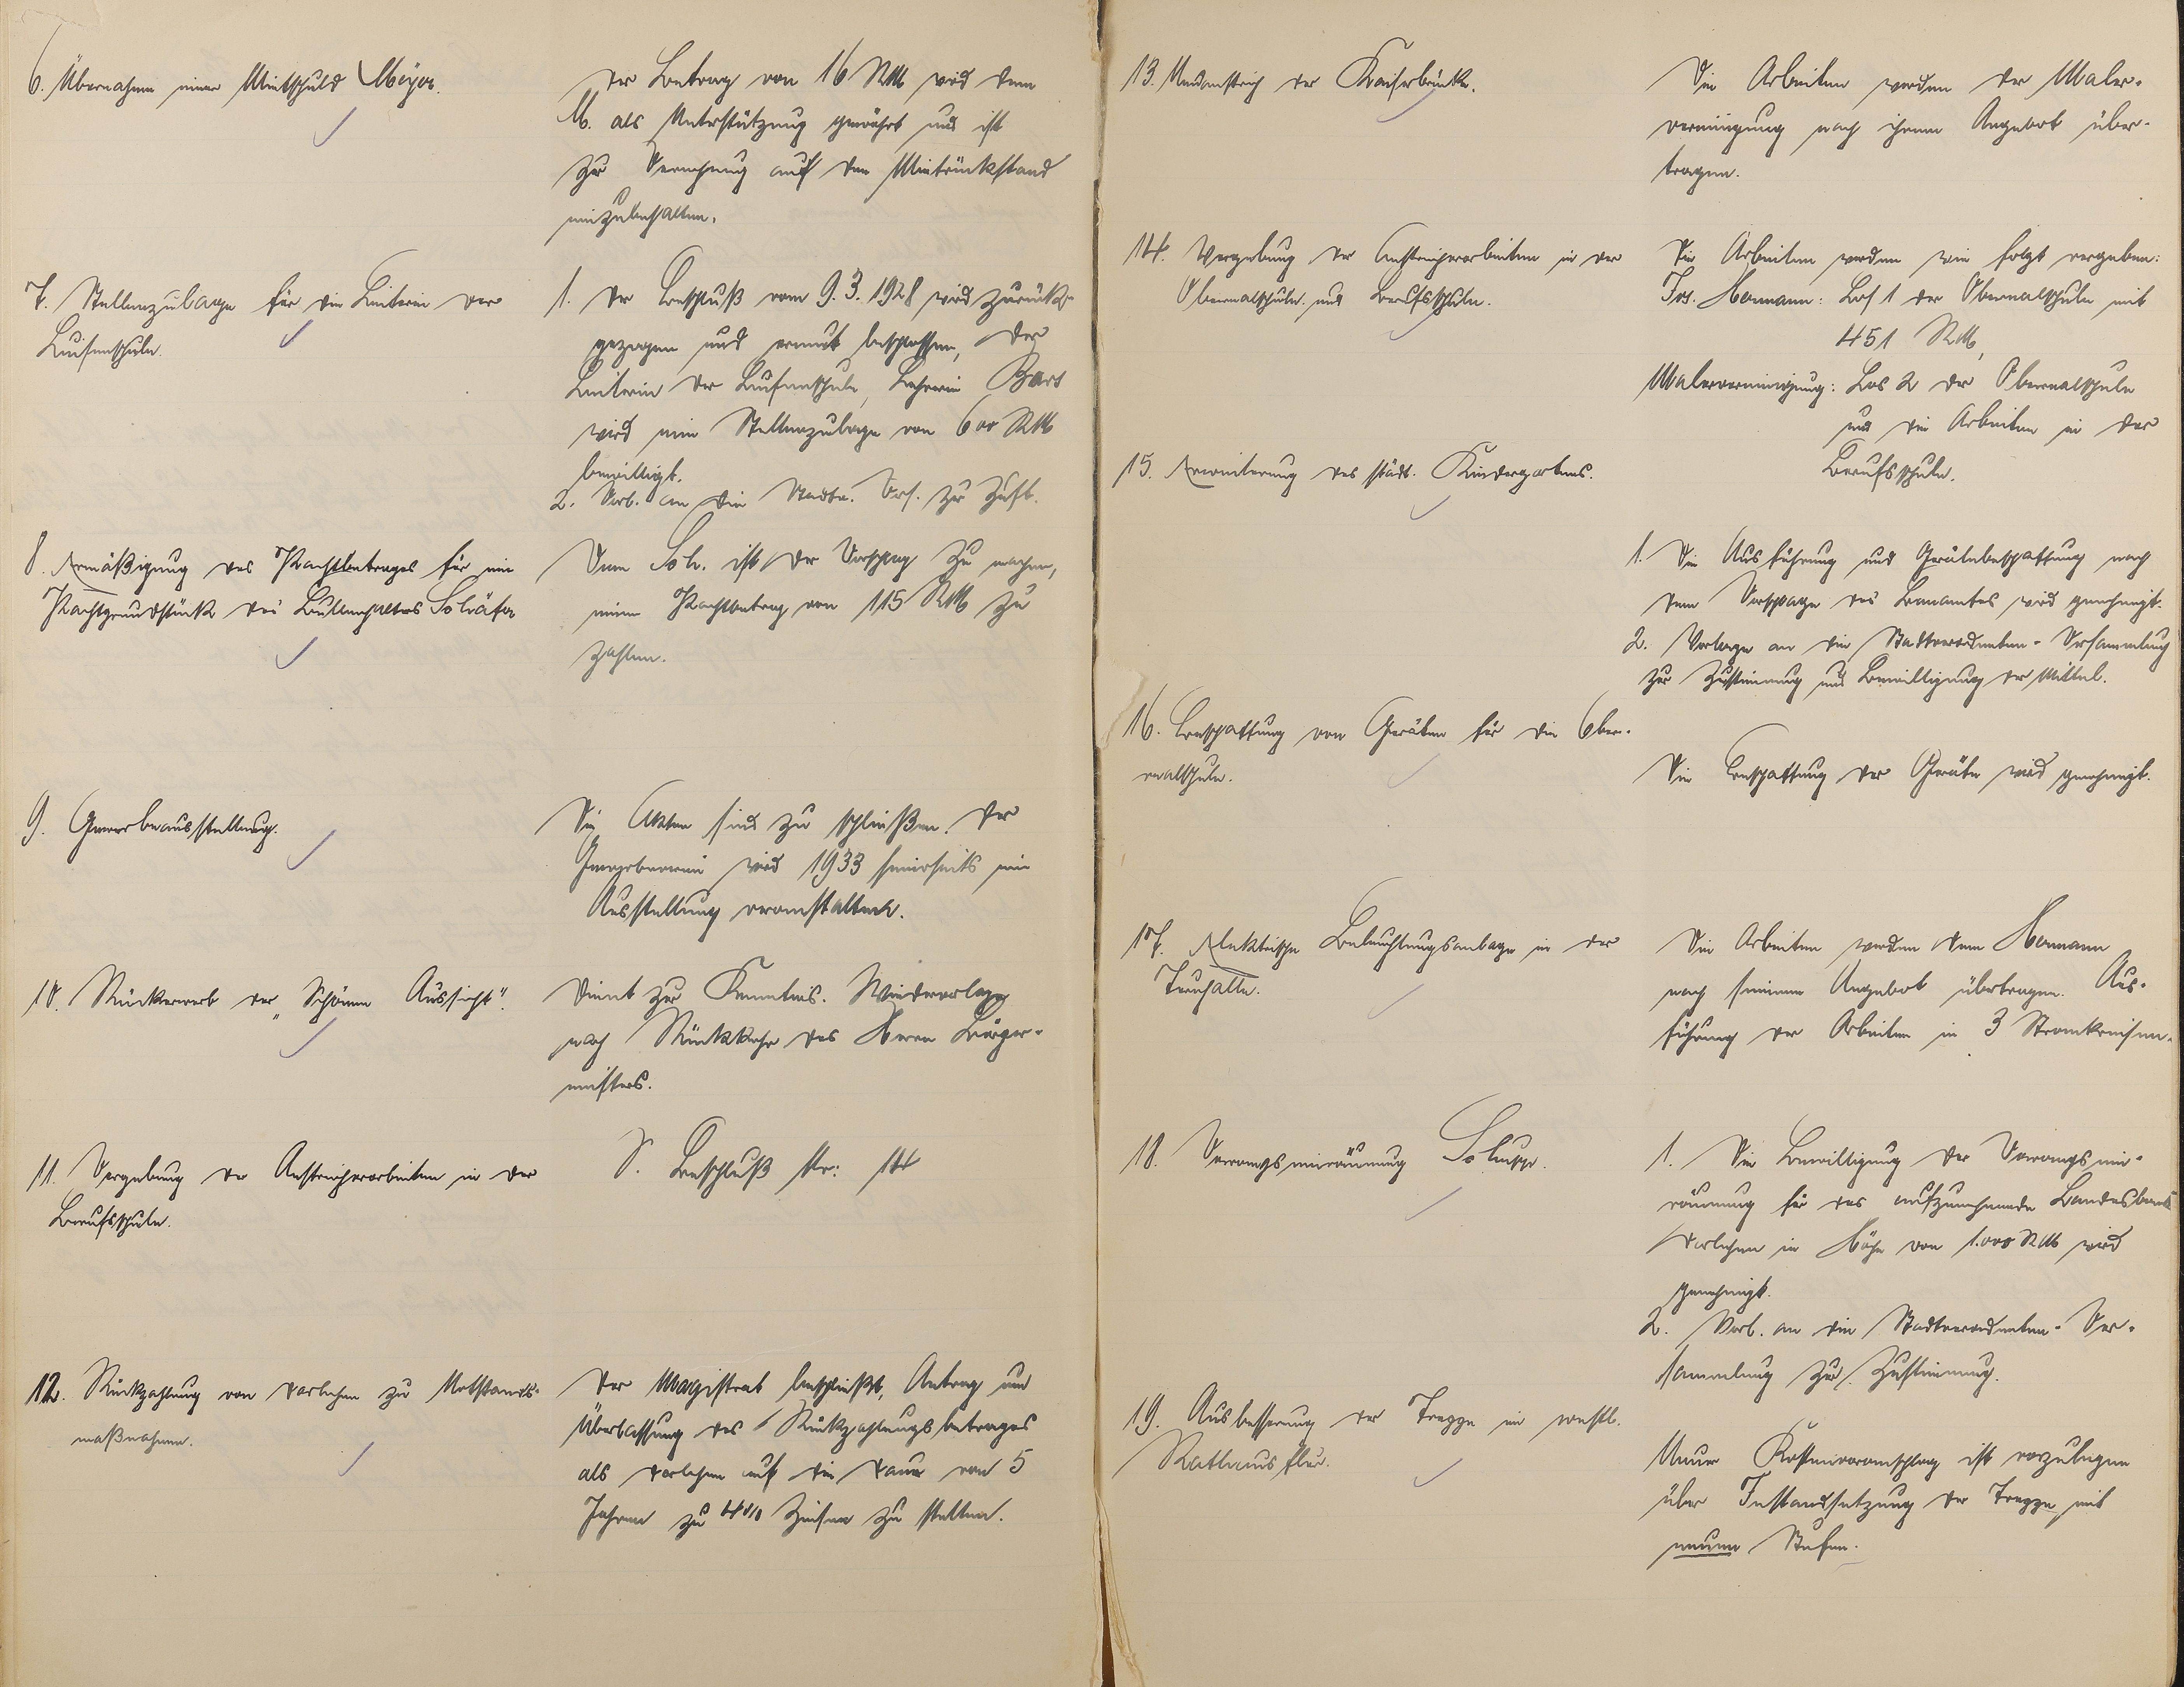 6. Übernahme einer Mietschuld Meyer.
Der Betrag von 16 RM wird dem
M. als Unterstützung gewährt und ist
zur Verrechnung auf den Mietrückstand
einzubehalten.
7. Stellenzulage für die Leiterin der
Luisenschule.
1. Der Beschluß vom 9.3.1928 wird zurück-
gezogen und erneut beschlossen, der
Leiterin der Luisenschule, Lehrerin
wird eine Stellenzulage von 600 RM
bewilligt.
2. Vorl. an die Stadtv. Vers. zur Zust.
8. Ermäßigung des Pachtbetrages für ein
Pachtgrundstück des Bullenhalters Schäfer
Dem Sch. ist der Vorschlag zu machen,
einen Pachtbetrag von 115 RM zu
zahlen.
9. Gewerbeausstellung.
Die Akten sind zu schließen. Der
Gewerbeverein wird 1933 seinerseits eine
Ausstellung veranstalten.
10. Rückerwerb der „Schönen Aussicht".
Dient zur Kenntnis. Wiedervorlage
nach Rückkehr des Herrn Bürger-
meisters.
11. Vergebung der Anstreicherarbeiten in der
Berufsschule.
S. Beschluß Nr: 14
12. Rückzahlung von Darlehen zu Notstands-
maßnahmen.
Der Magistrat beschließt, Antrag um
Überlassung des Rückzahlungsbetrages
als Darlehen auf die Dauer von 5
Jahren zu 4% Zinsen zu stellen.
13. Neuanstrich der Kaiserbrücke.
Die Arbeiten werden der Maler-
vereinigung nach ihrem Angebot über-
tragen.
14. Vergebung der Anstreicherarbeiten in der
Oberrealschule und Berufsschule.
Die Arbeiten werden wie folgt vergeben:
Jos. Hermann: Los 1 der Oberrealschule mit
451 RM,
Malervereinigung: Los 2 der Oberrealschule
und die Arbeiten in der
Berufsschule.
15. Erweiterung des städt. Kindergartens.
1. Die Ausführung und Gerätebeschaffung nach
dem Vorschlage des Bauamtes wird genehmigt.
2. Vorlage an die Stadtverordneten-Versammlung
zur Zustimmung und Bewilligung der Mittel.
16. Beschaffung von Geräten für die Ober-
realschule.
Die Beschaffung der Geräte wird genehmigt.
17. Elektrische Beleuchtungsanlage in der
Turnhalle.
Die Arbeiten werden dem Hermann
nach seinem Angebot übertragen. Aus-
führung der Arbeiten in 3 Stromkreisen.
18. Vorrangseinräumung
1. Die Bewilligung der Vorrangsein-
räumung für das aufzunehmende Landesbank
Darlehen in Höhe von 1.000 RM wird
genehmigt.
2. Vorl. an die Stadtverordneten-Ver-
sammlung zur Zustimmung.
19. Ausbesserung der Treppe im westl.
Rathausflur.
Neuer Kostenvoranschlag ist vorzulegen
über Instandsetzung der Treppe mit
neuen Stufen.